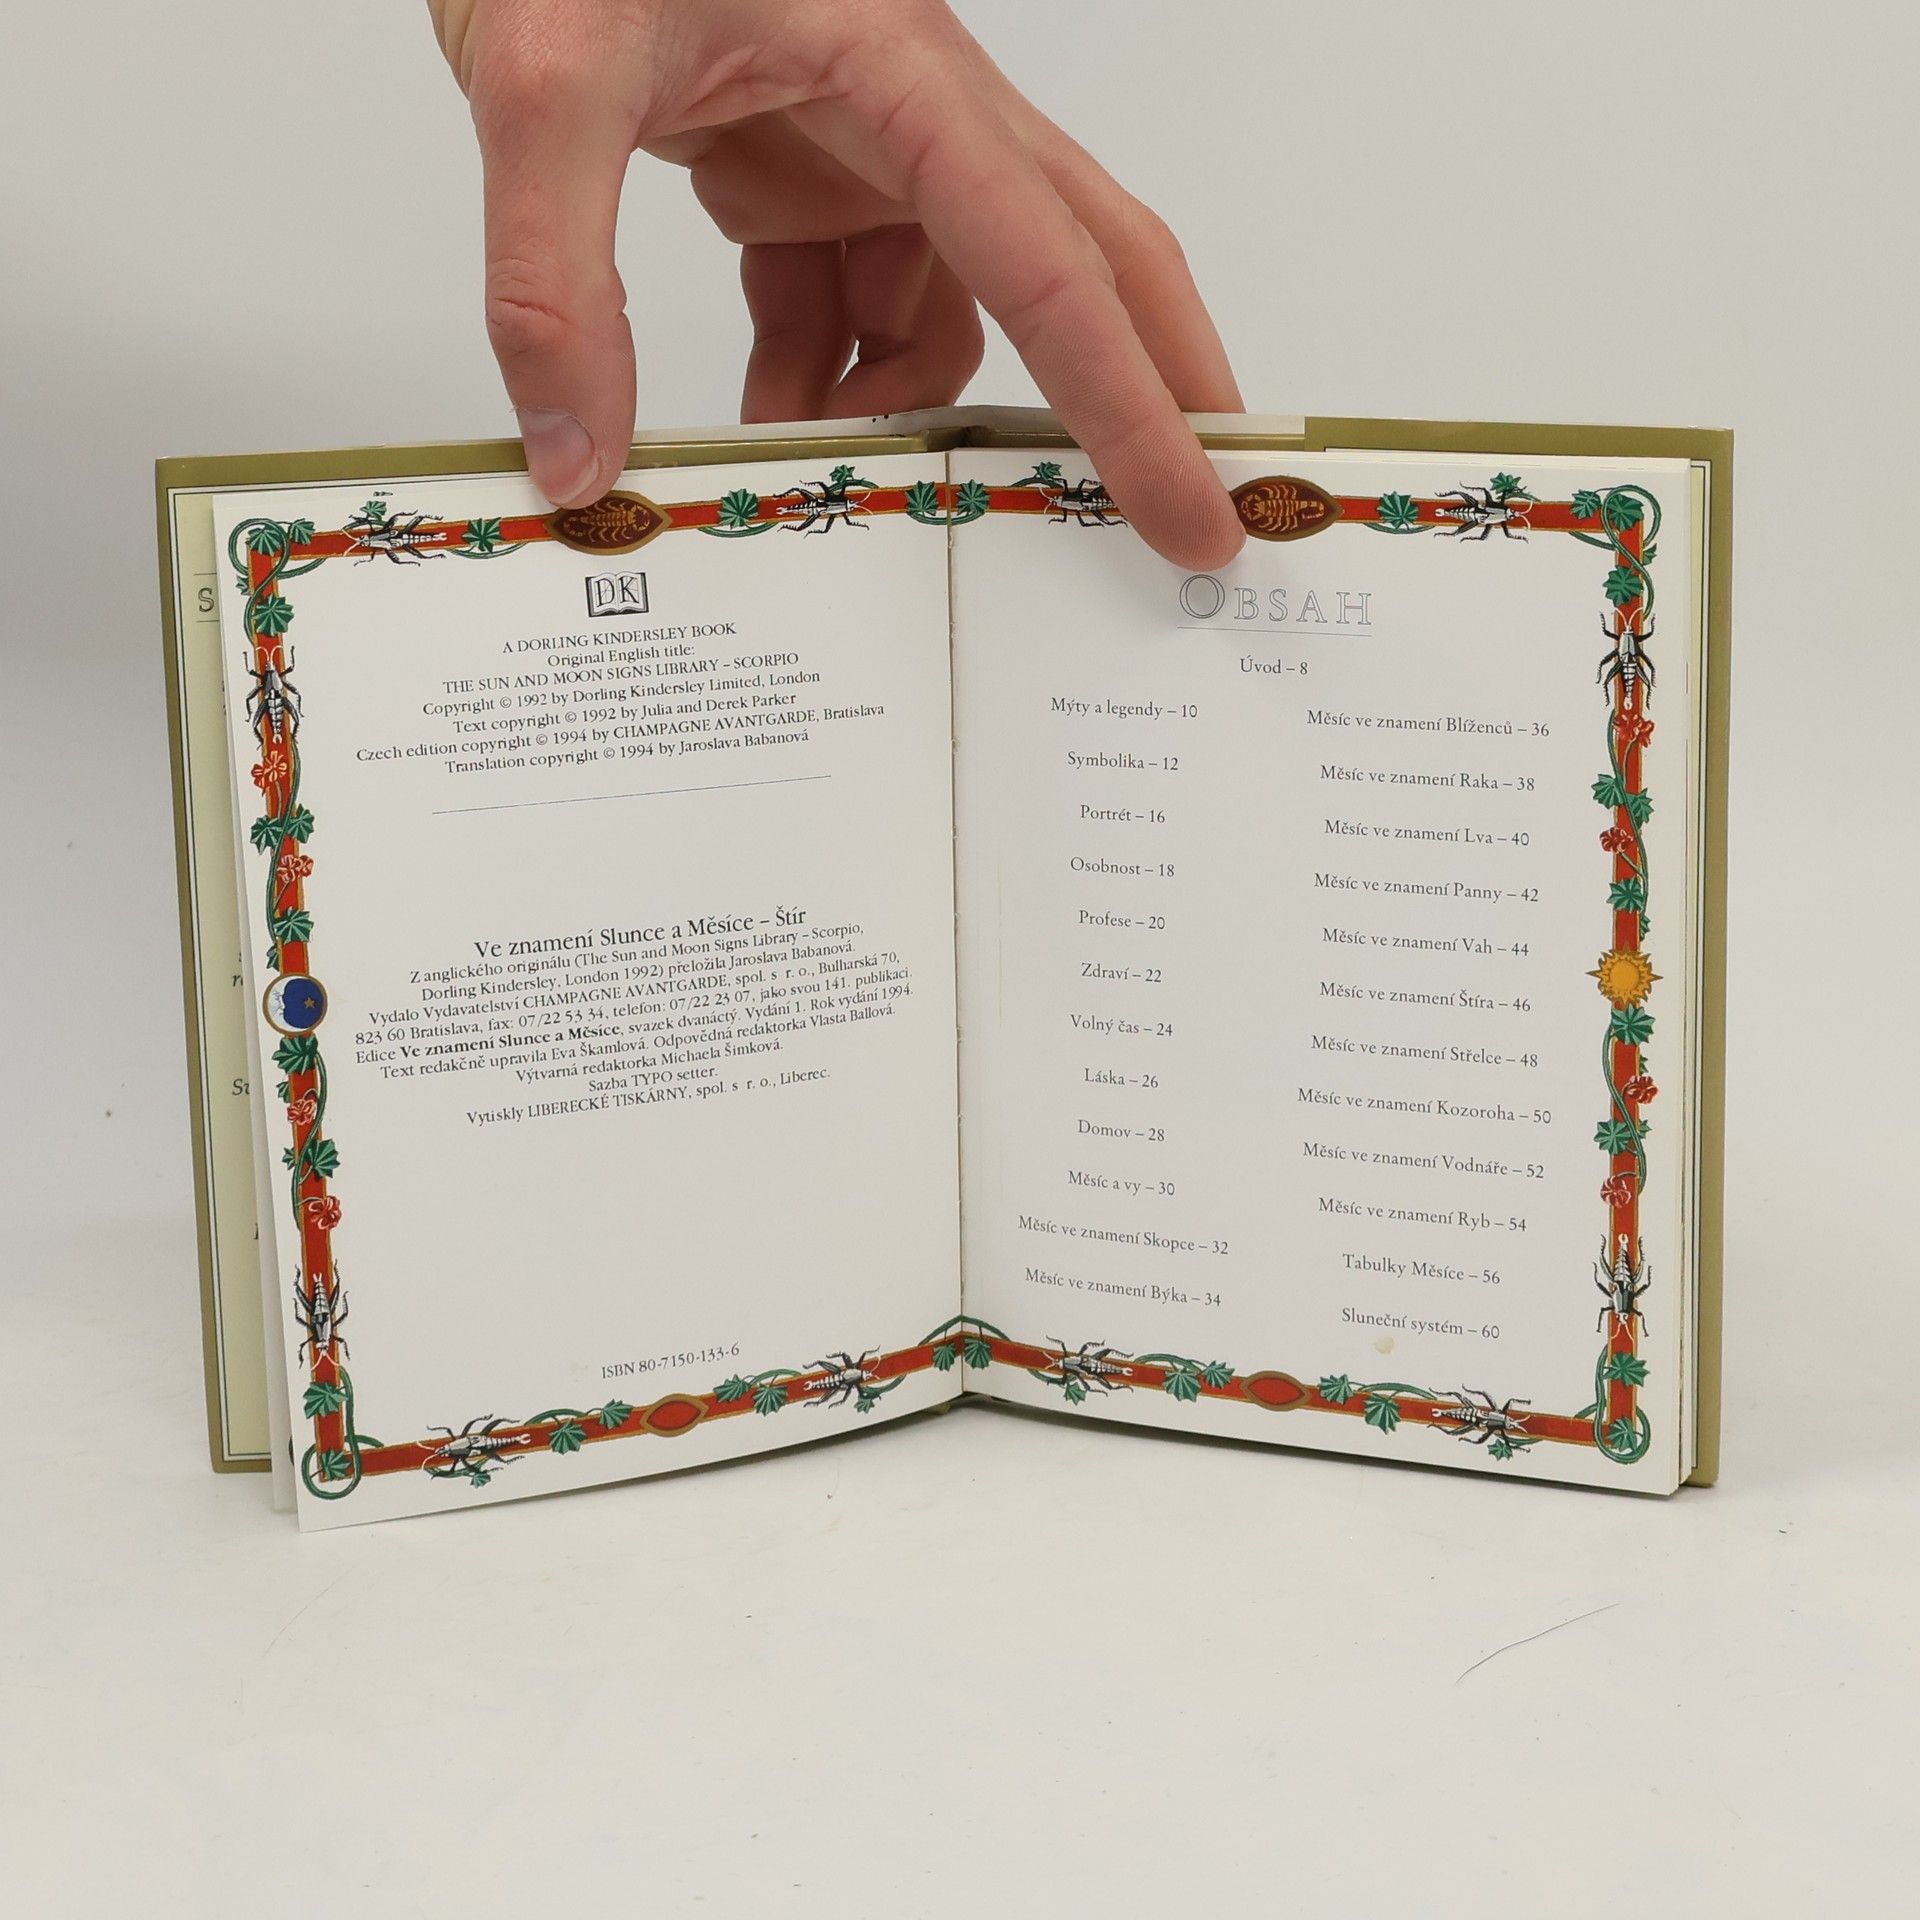 DK
A DORLING KINDERSLEY BOOK
Original English title:
THE SUN AND MOON SIGNS LIBRARY – SCORPIO
Copyright © 1992 by Dorling Kindersley Limited, London
Text copyright © 1992 by Julia and Derek Parker
Czech edition copyright © 1994 by CHAMPAGNE AVANTGARDE, Bratislava
Translation copyright © 1994 by Jaroslava Babanová
Ve znamení Slunce a Měsíce – Štír
Z anglického originálu (The Sun and Moon Signs Library – Scorpio,
Dorling Kindersley, London 1992) přeložila Jaroslava Babanová.
Vydalo Vydavatelství CHAMPAGNE AVANTGARDE, spol. s r. o., Bulharská 70,
823 60 Bratislava, fax: 07/22 53 34, telefon: 07/22 23 07, jako svou 141. publikaci.
Edice Ve znamení Slunce a Měsíce, svazek dvanáctý. Vydání 1. Rok vydání 1994.
Text redakčně upravila Eva Škamlová. Odpovědná redaktorka Vlasta Ballová.
Výtvarná redaktorka Michaela Šimková.
Sazba TYPO setter.
Vytiskly LIBERECKÉ TISKÁRNY, spol. s r. o., Liberec.
ISBN 80-7150-133-6
OBSAH
Úvod – 8
Mýty a legendy – 10
Symbolika – 12
Portrét – 16
Osobnost – 18
Profese – 20
Zdraví – 22
Volný čas – 24
Láska – 26
Domov – 28
Měsíc a vy – 30
Měsíc ve znamení Skopce – 32
Měsíc ve znamení Býka – 34
Měsíc ve znamení Blíženců – 36
Měsíc ve znamení Raka – 38
Měsíc ve znamení Lva – 40
Měsíc ve znamení Panny – 42
Měsíc ve znamení Vah – 44
Měsíc ve znamení Štíra – 46
Měsíc ve znamení Střelce – 48
Měsíc ve znamení Kozoroha – 50
Měsíc ve znamení Vodnáře – 52
Měsíc ve znamení Ryb – 54
Tabulky Měsíce – 56
Sluneční systém – 60